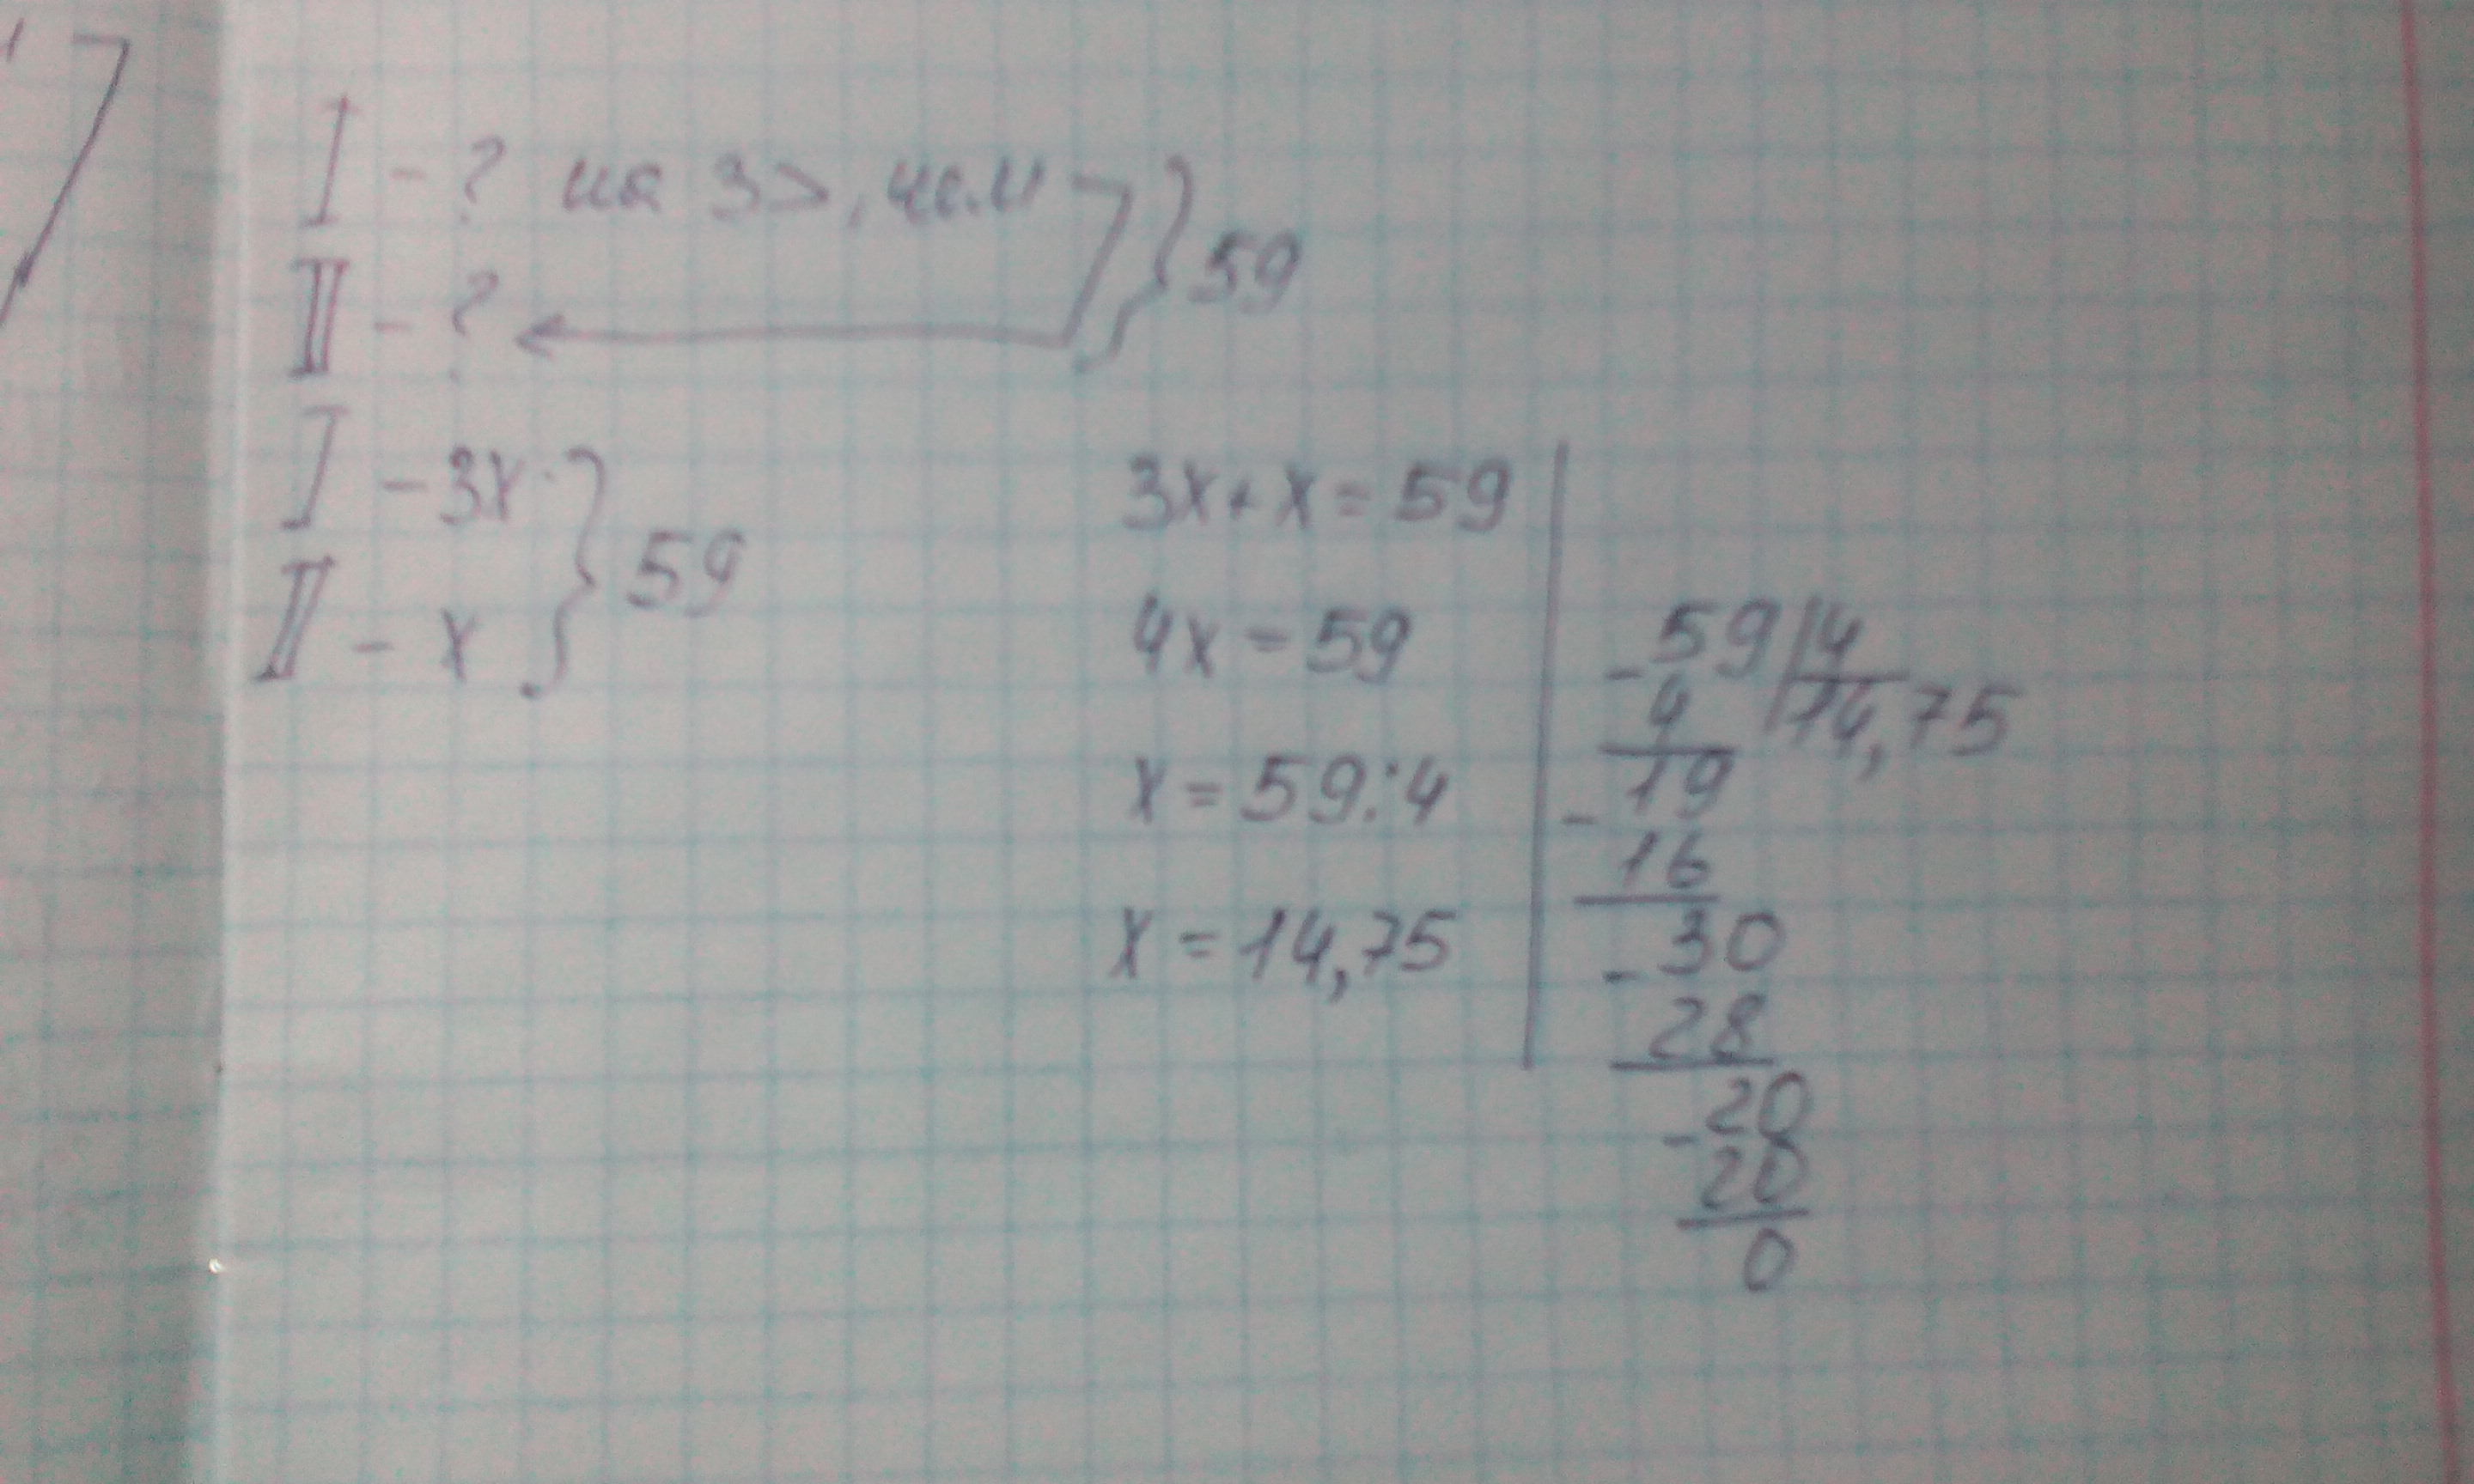 I - ? на 3 >, чем } 59
II - ?
I - 3x } 59
II - x
3x + x = 59
4x = 59
x = 59 : 4
x = 14,75
- 59 | 4
4 14,75
- 19
16
- 30
28
- 20
20
0